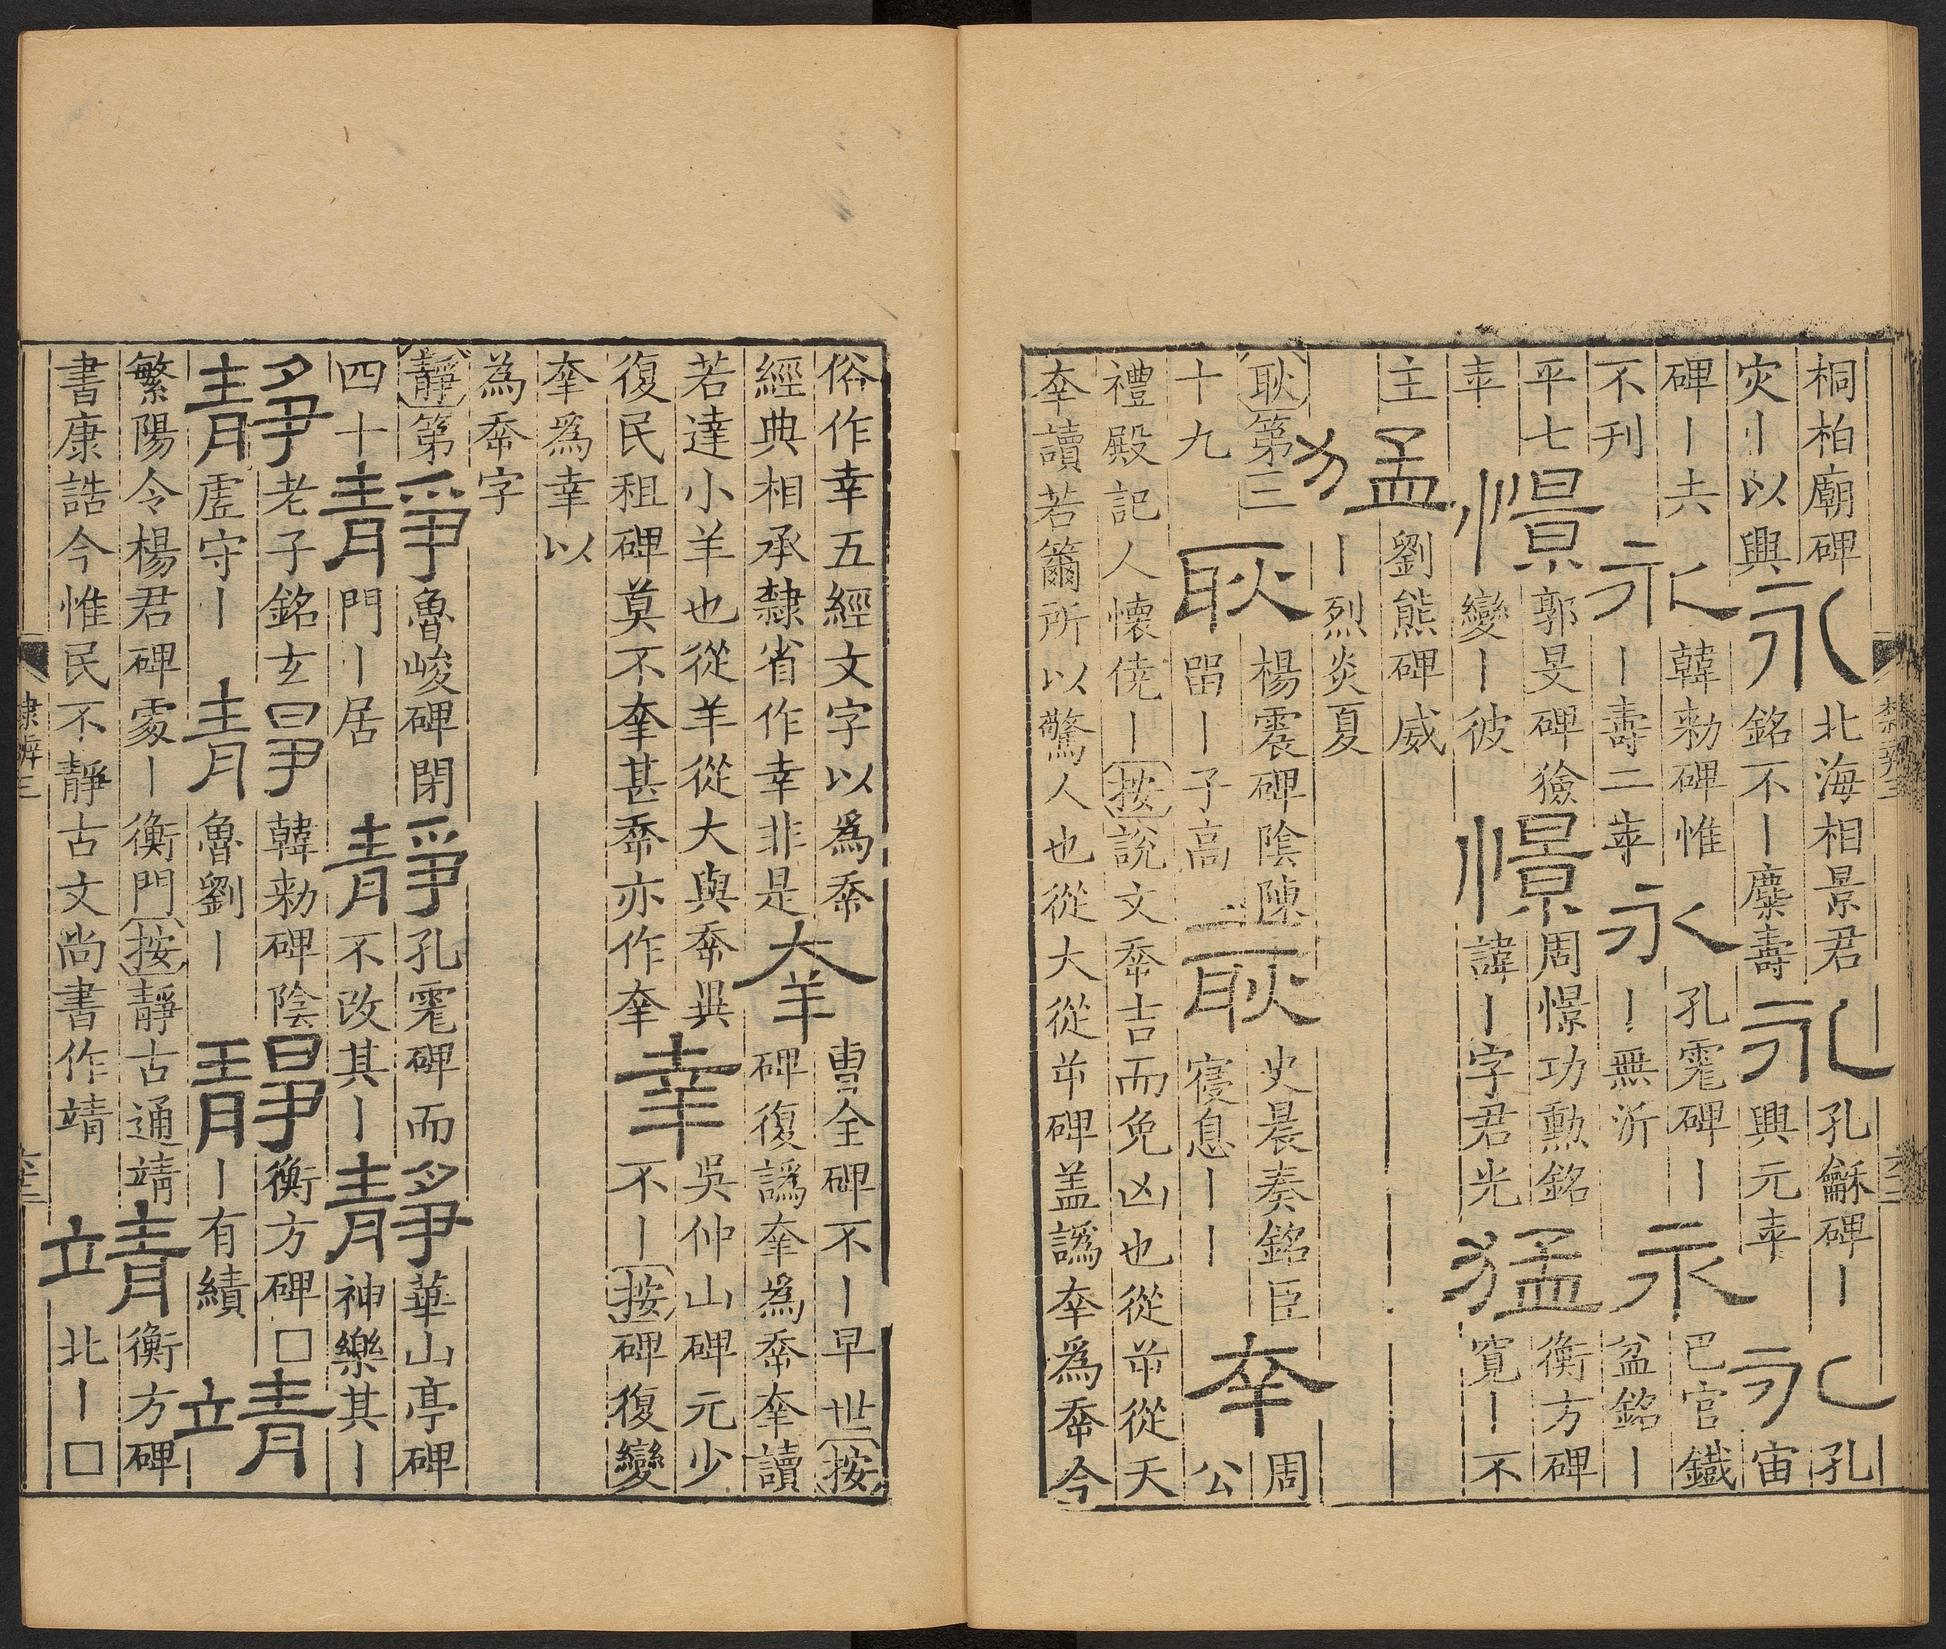 桐柏廟碑灾丨以興永北海相景君銘不丨麋壽永孔龢碑丨興元年永孔宙
碑丨共不刊永韓勑碑惟丨壽二年永孔彪碑丨無沂永巴官鐵盆銘丨
平七年憬郭旻碑獫變丨彼憬周憬功勳銘諱丨字君光猛衡方碑寬丨不
主猛劉熊碑威丨烈炎夏
耿第三十九耿楊震碑陰陳畱丨子高耿史晨奏銘臣寑息丨丨㚔周公
禮殿記人懷僥丨按說文𡴘吉而免凶也從屰從夭㚔讀若籋所以驚人也從大從𢆉碑盖譌㚔爲𡴘今
隸辨三
俗作幸五經文字以爲𡴘經典相承隸省作幸非是羍曹全碑不丨早世按碑復譌羍爲𡴘羍讀
若達小羊也從羊從大與𡴘異復民租碑莫不羍甚𡴘亦作羍幸吳仲山碑元少不丨按碑復變
羍爲幸以為𡴘字
靜第四十靜魯峻碑閉門丨居靜孔彪碑而不改其丨靜華山亭碑神樂其丨
靜老子銘玄虛守丨靜韓勑碑陰魯劉丨靜衡方碑□丨有績靖
繁陽令楊君碑䖏丨衡門按靜古通靖書康誥今惟民不靜古文尚書作靖靖衡方碑北丨□
隸辨三